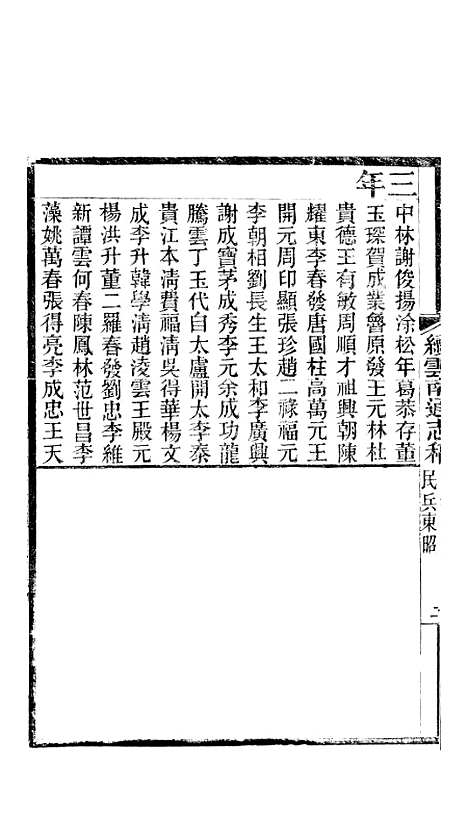 三年
中林謝俊揚涂松年葛恭存董
玉琛賀成業魯原發王元林杜
貴德王有敏周順才祖興朝陳
耀東李春發唐國柱高萬元王
開元周印顯張珍趙二祿福元
李朝相劉長生王太和李廣興
謝成寶茅成秀李元余成功龍
騰雲丁玉代自太盧開太李泰
貴江本淸費福淸吳得華楊文
成李升韓學淸趙淩雲王殿元
楊洪升董二羅春發劉忠李維
新譚雲何春陳鳳林范世昌李
藻姚萬春張得亮李成忠王天
續雲南通志稿
民兵東昭